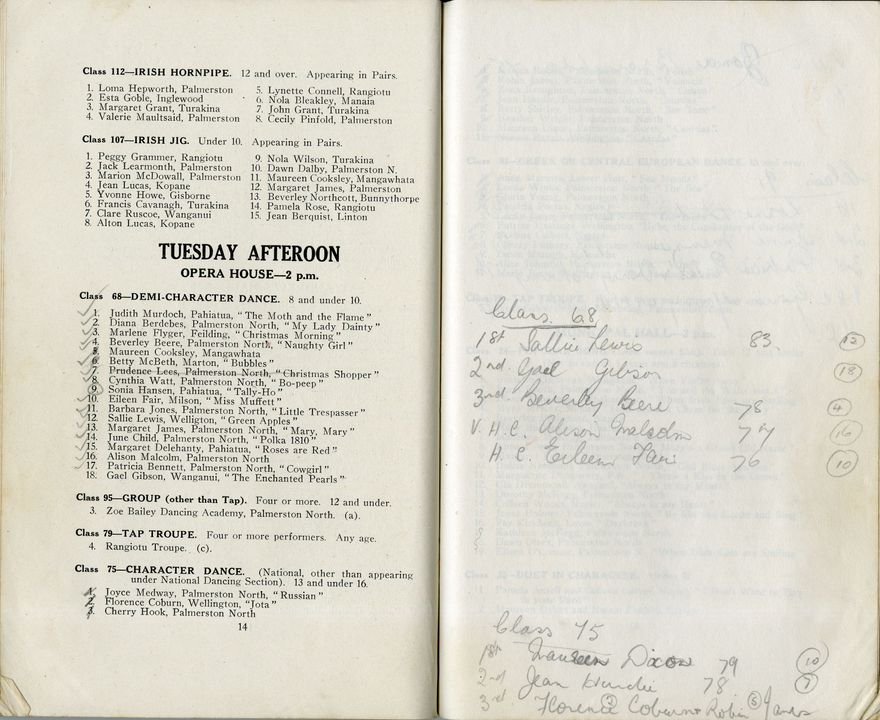 Class 112—IRISH HORNPIPE. 12 and over. Appearing in Pairs.
1. Loma Hepworth, Palmerston
2. Esta Goble, Inglewood
3. Margaret Grant, Turakina
4. Valerie Maultsaid, Palmerston
5. Lynette Connell, Rangiotu
6. Nola Bleakley, Manaia
7. John Grant, Turakina
8. Cecily Pinfold, Palmerston
Class 107—IRISH JIG. Under 10. Appearing in Pairs.
1. Peggy Grammer, Rangiotu
2. Jack Learmonth, Palmerston
3. Marion McDowall, Palmerston
4. Jean Lucas, Kopane
5. Yvonne Howe, Gisborne
6. Francis Cavanagh, Turakina
7. Clare Ruscoe, Wanganui
8. Alton Lucas, Kopane
9. Nola Wilson, Turakina
10. Dawn Dalby, Palmerston N.
11. Maureen Cooksley, Mangawhata
12. Margaret James, Palmerston
13. Beverley Northcott, Bunnythorpe
14. Pamela Rose, Rangiotu
15. Jean Berquist, Linton
TUESDAY AFTEROON
OPERA HOUSE—2 p.m.
Class 68—DEMI-CHARACTER DANCE. 8 and under 10.
1. Judith Murdoch, Pahiatua, "The Moth and the Flame"
2. Diana Berdebes, Palmerston North, "My Lady Dainty"
3. Marlene Flyger, Feilding, "Christmas Morning"
4. Beverley Beere, Palmerston North, "Naughty Girl"
5. Maureen Cooksley, Mangawhata
6. Betty McBeth, Marton, "Bubbles"
7. Prudence Lees, Palmerston North, "Christmas Shopper"
8. Cynthia Watt, Palmerston North, "Bo-peep"
9. Sonia Hansen, Pahiatua, "Tally-Ho"
10. Eileen Fair, Milson, "Miss Muffett"
11. Barbara Jones, Palmerston North, "Little Trespasser"
12. Sallie Lewis, Welligton, "Green Apples"
13. Margaret James, Palmerston North, "Mary, Mary"
14. June Child, Palmerston North, "Polka 1810"
15. Margaret Delehanty, Pahiatua, "Roses are Red"
16. Alison Malcolm, Palmerston North
17. Patricia Bennett, Palmerston North, "Cowgirl"
18. Gael Gibson, Wanganui, "The Enchanted Pearls"
Class 95—GROUP (other than Tap). Four or more. 12 and under.
3. Zoe Bailey Dancing Academy, Palmerston North. (a).
Class 79—TAP TROUPE. Four or more performers. Any age.
4. Rangiotu Troupe. (c).
Class 75—CHARACTER DANCE. (National, other than appearing
under National Dancing Section). 13 and under 16.
1. Joyce Medway, Palmerston North, "Russian"
2. Florence Coburn, Wellington, "Jota"
3. Cherry Hook, Palmerston North
14
Class 68
1st Sallie Lewis 83. 12
2nd. Gael Gibson 18
3rd. Beverley Beere 78 4
V. H. C. Alison Malcolm 77 16
H. C. Eileen Fair 76 10
Class 75
1st Dixon 79 10
2nd Jean 78 7
3rd Florence 2 Coburn + Robin 5